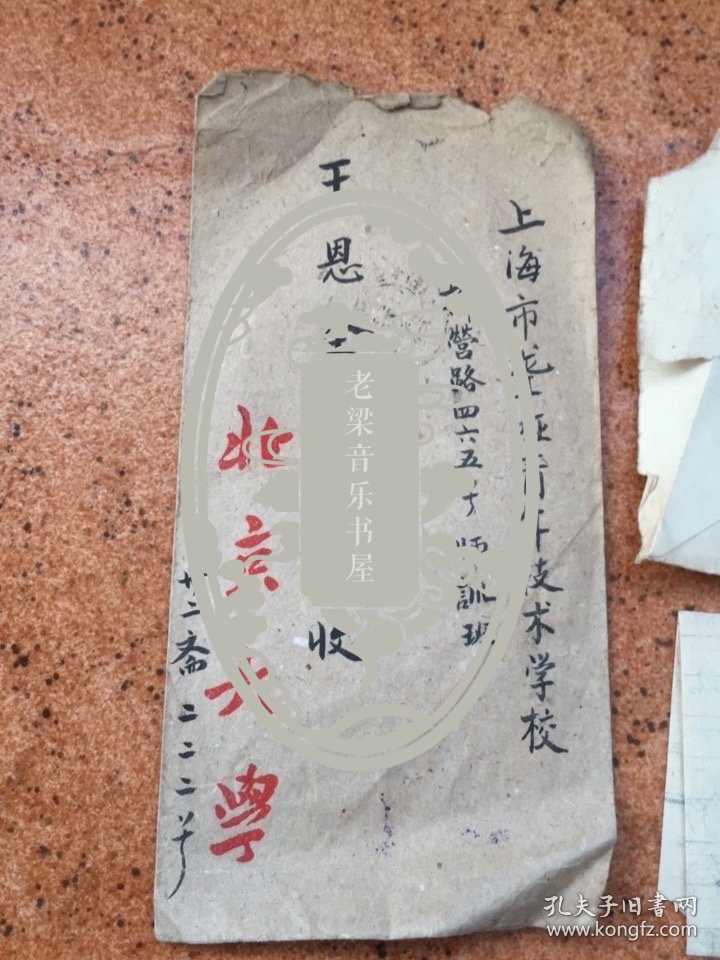 上海市
技术学校
营路四六五号师训班
王恩
收
北京大学
廿二斋二二二号
老梁音乐书屋
孔夫子旧书网
www.kongfz.com